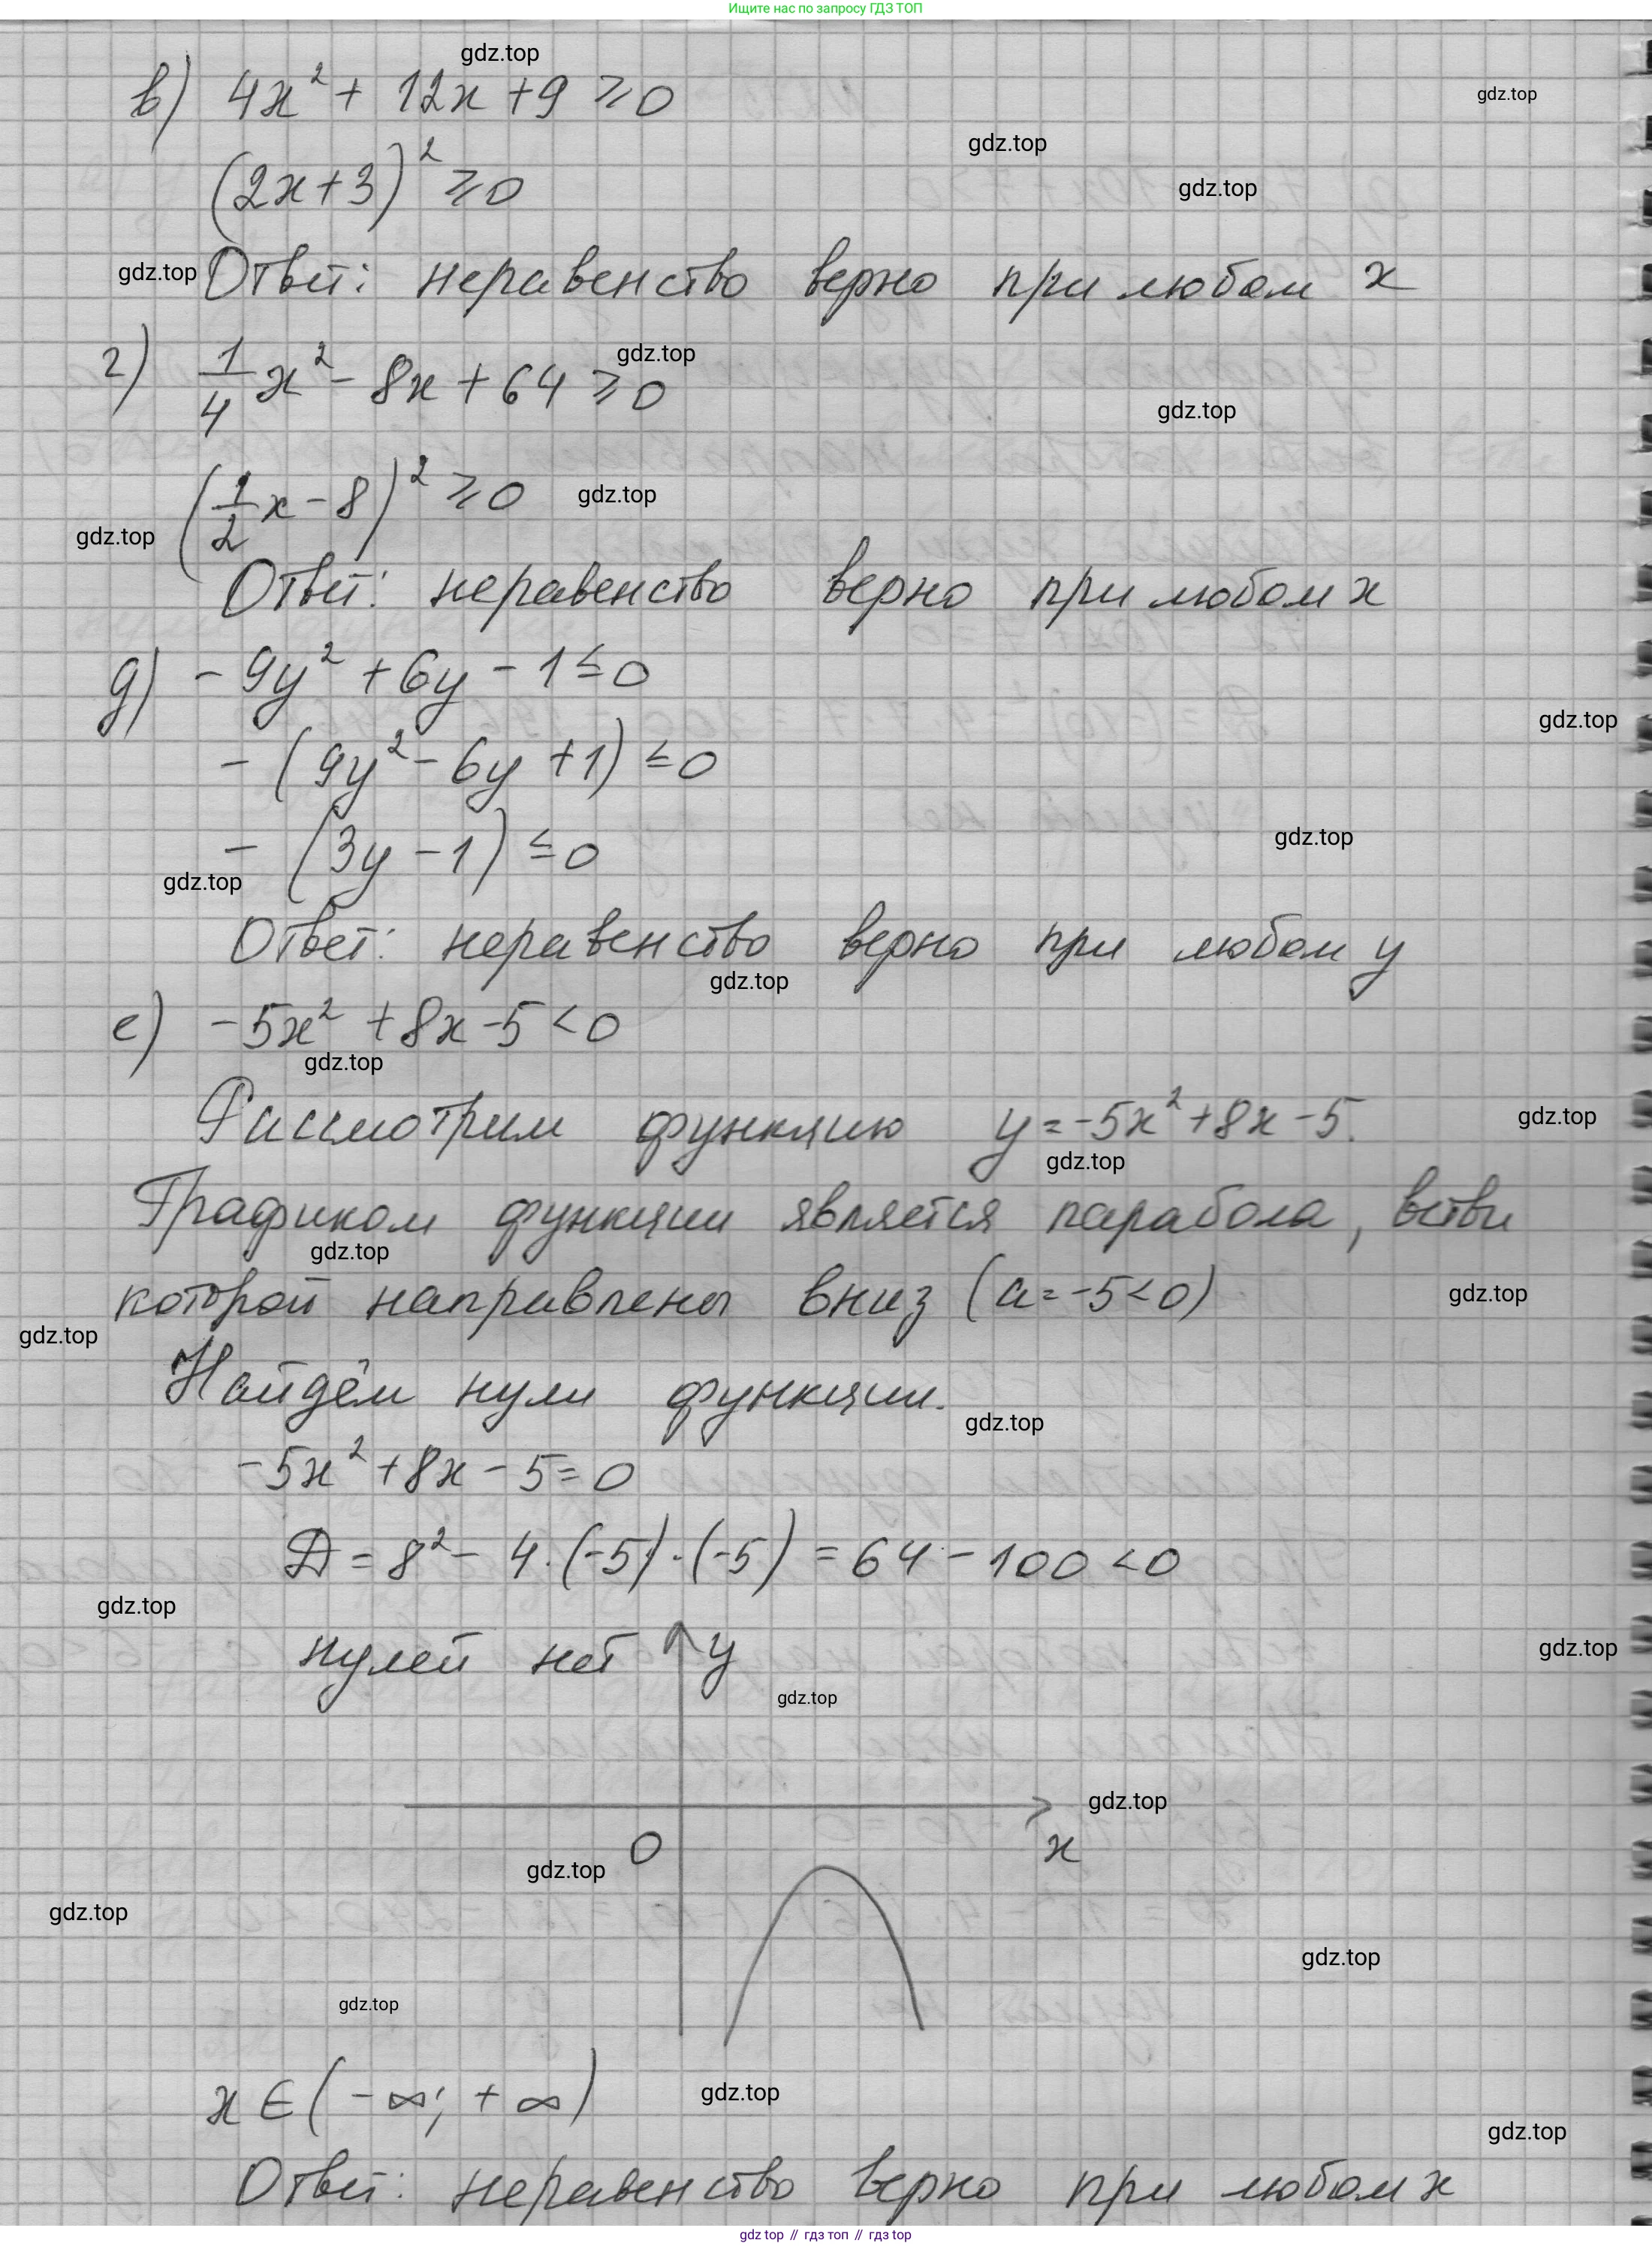 Ищите нас по запросу ГДЗ ТОП
gdz.top
в) 4x² + 12x + 9 ≥ 0
gdz.top
gdz.top
(2x+3)² ≥ 0
gdz.top
gdz.top
Ответ: неравенство верно при любом x
г) 1/4 x² - 8x + 64 ≥ 0
gdz.top
gdz.top
(1/2 x - 8)² ≥ 0
gdz.top
gdz.top
Ответ: неравенство верно при любом x
д) - 9y² + 6y - 1 ≤ 0
gdz.top
- (9y² - 6y + 1) ≤ 0
gdz.top
- (3y - 1) ≤ 0
gdz.top
Ответ: неравенство верно при любом y
gdz.top
е) -5x² + 8x - 5 < 0
gdz.top
Рассмотрим функцию y = -5x² + 8x - 5.
gdz.top
gdz.top
Графиком функции является парабола, ветви
gdz.top
которой направлены вниз (a = -5 < 0)
gdz.top
gdz.top
Найдём нули функции.
gdz.top
-5x² + 8x - 5 = 0
D = 8² - 4·(-5)·(-5) = 64 - 100 < 0
gdz.top
нулей нет y
gdz.top
gdz.top
gdz.top
0 x
gdz.top
gdz.top
gdz.top
gdz.top
x ∈ (-∞; +∞)
gdz.top
gdz.top
Ответ: неравенство верно при любом x
gdz top // гдз топ // гдз top